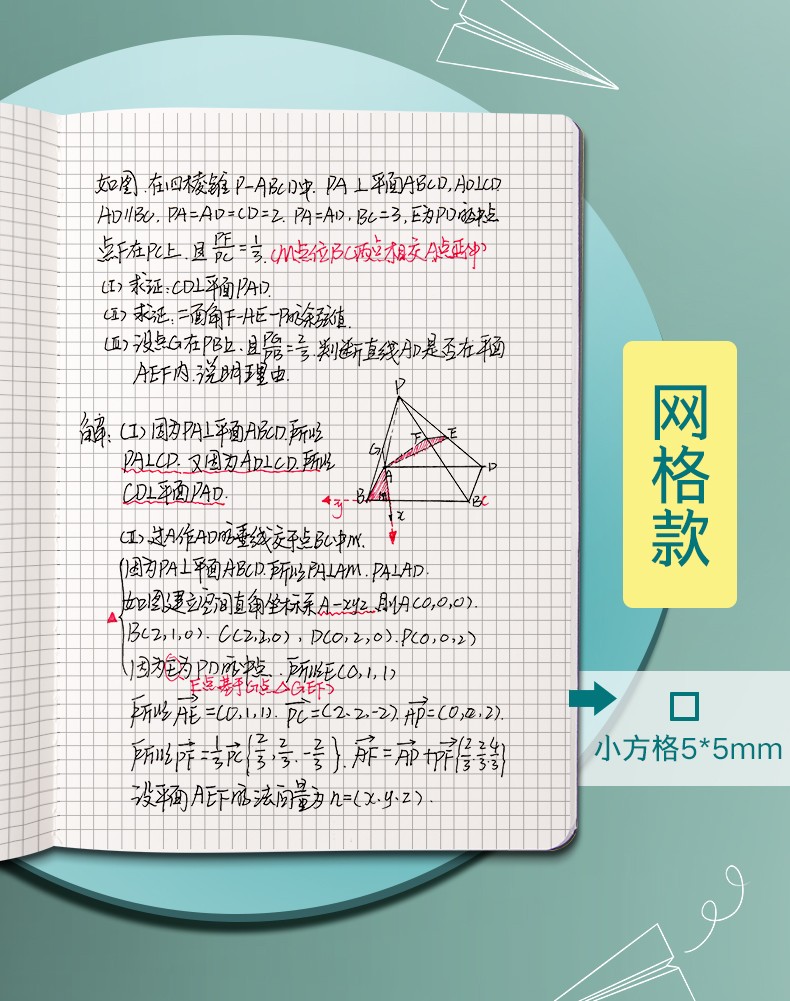 如图.在四棱锥P-ABCD中. PA⊥平面ABCD, AD⊥CD.
AD∥BC. PA=AD=CD=2. PA=AD, BC=3, E为PD的中点
点F在PC上.且PF/PC=1/3.(M点位BC两点相交A点延伸)
(I)求证:CD⊥平面PAD.
(II)求证:二面角F-AE-P的余弦值.
(III)设点G在PB上.且PG/PB=2/3.判断直线AD是否在平面
AEF内.说明理由.
解:(I)因为PA⊥平面ABCD.所以
PA⊥CD.又因为AD⊥CD.所以
CD⊥平面PAD.
P
G
F
E
A
D
B
M
BC
y
x
(II).过A作AD的垂线交于点BC中M.
因为PA⊥平面ABCD.所以PA⊥AM.PA⊥AD.
如图建立空间直角坐标系A-xyz.则A(0,0,0).
B(2,1,0).C(2,2,0),D(0,2,0).P(0,0,2)
因为E为PD的中点.所以E(0,1,1)
E点基于G点△GEF)
所以AE=(0,1,1).PC=(2,2,-2).AP=(0,0,2).
所以PF=1/3PC{2/3,2/3,-2/3}.AF=AP+PF{2/3,2/3,4/3}
设平面AEF的法向量为n=(x.y.z).
网格款
小方格5*5mm